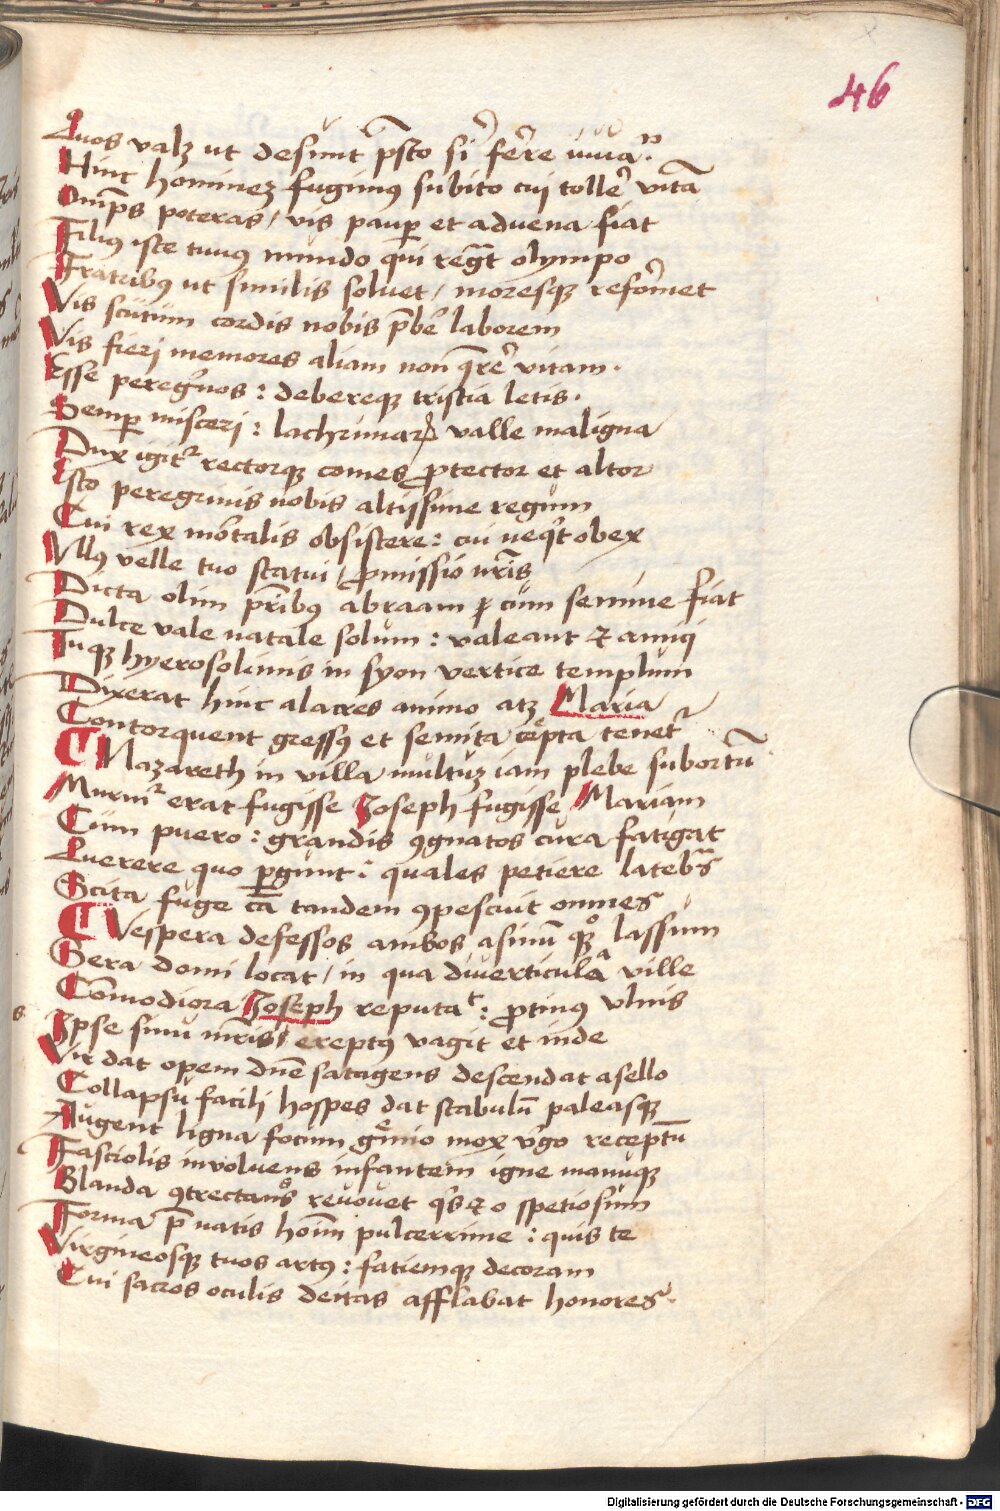 46
Quos valz ut desunt p̄sto si fer̄e iuua.
Hinc hominez fugimus subito cui toller̉ vitā
Oīnp̄s poteras / vis pauꝑ et advena fiat
Filius iste tuus mundo qui regāt olympo
Fratribus ut similis soluet / moresqꝫ reformet
Vis scutum cordis nobis p̄ber̉ laborem
Vis fieri memores aliam non q̄rer̉ vitam.
Esse peregrinos : debereqꝫ tristia letis.
Semꝑ misceri : lachrimarꝝ valle maligna
Dux igitr rectorqꝫ comes ꝓtector et altor
Esto peregrinis nobis altissime regum
Cui rex mortalis obsistere : cui nequit obex
Ullus velle tuo statui / ꝓmissio nr̄is
Dicta olim pr̄ibus abraam ꝑ cum semine fiat
Dulce vale natale solum : valeant & amici
Tuqꝫ hyerosolimis in syon vertice templum
Dixerat hinc alacres animo atqꝫ Maria
Contorquent gressus et semita cepta tenetr
Nazareth in villa multuz iam plebe subortū
Murmr erat fugisse Joseph fugisse Mariam
Cum puero : grandis ꝯgnatos cura fatigat
Querere quo ꝑgunt : quales petiere latebrās
Scita fuge cā tandem ꝯpescuit omnes
Vespera defessos ambos asinū qꝫ lassum
Sera domi locat / in qua diverticula ville
Cōmodiora Joseph reputat : ꝓtinus ulnis
Ipse sinu mr̄is ereptus vagit et inde
Vir dat opem dn̄e satagens descendat asello
Collapsu facili hospes dat stabulū paleasqꝫ
Augent ligna focum gremio mox virgo receptū
Fasciolis involuens infantem igne manuqꝫ
Blanda ꝯtrectans revovet qis & o spetiosum
Forma p̄ natis hoīm pulcerrime : quis te
Virgineosqꝫ tuos artus : fatiemqꝫ decoram
Cui sacros oculis deitas afflabat honores.
Digitalisierung gefördert durch die Deutsche Forschungsgemeinschaft - DFG